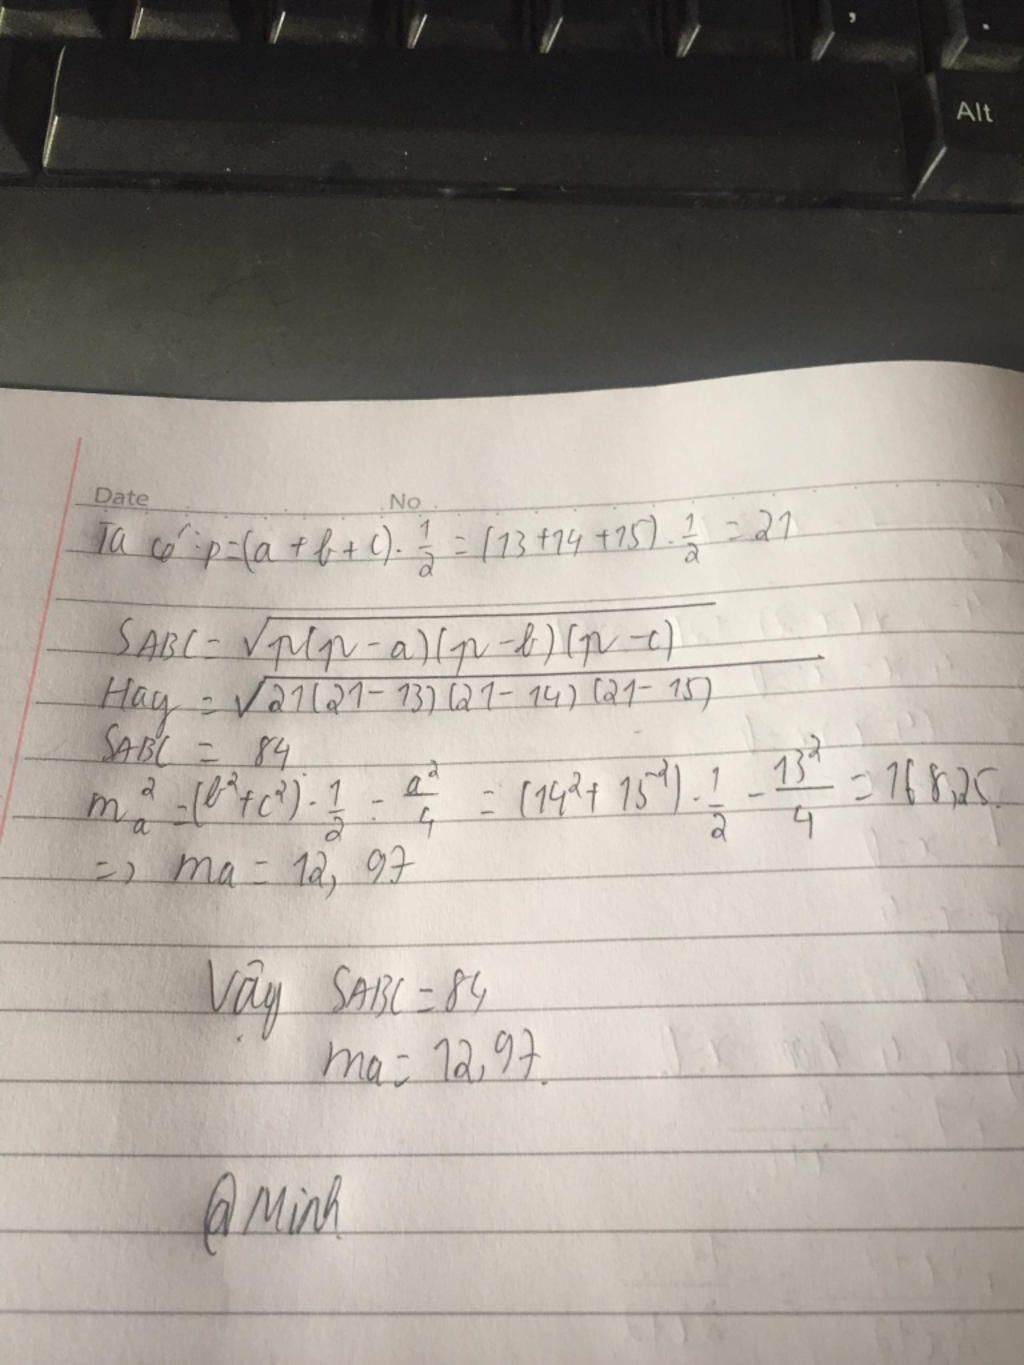 ,
.
Alt
Date No
Ta có: p=(a+b+c).1/2=(13+14+15).1/2=21
SABC=√p(p-a)(p-b)(p-c)
Hay =√21(21-13)(21-14)(21-15)
SABC = 84
mₐ²=(b²+c²).1/2-a²/4=(14²+15²).1/2-13²/4=168,25.
=> ma=12,97
Vậy SABC=84
ma=12,97.
@Minh